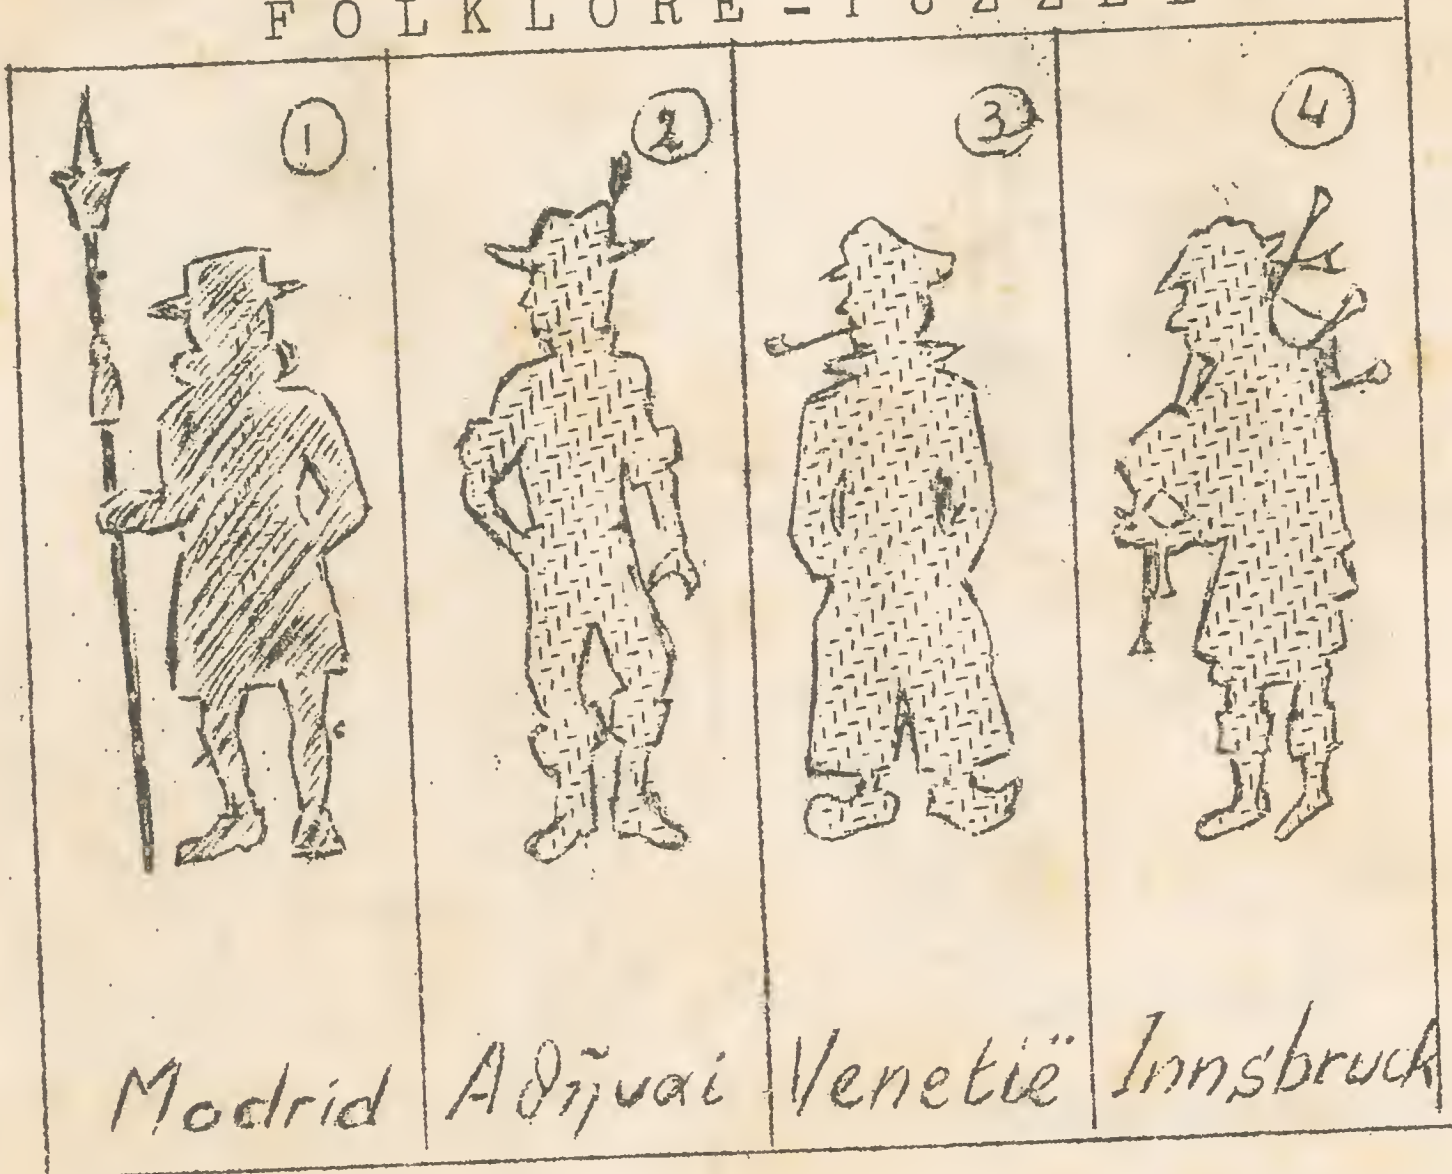 FOLKLORE -
1
2
3
4
Madrid
Αθῆναι
Venetië
Innsbruck